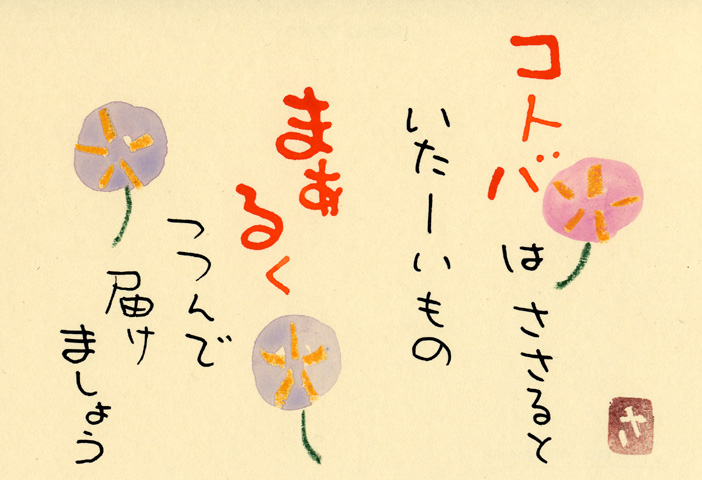 コトバはささると
いたーいもの
まぁるく
つつんで
届け
ましょう
さ